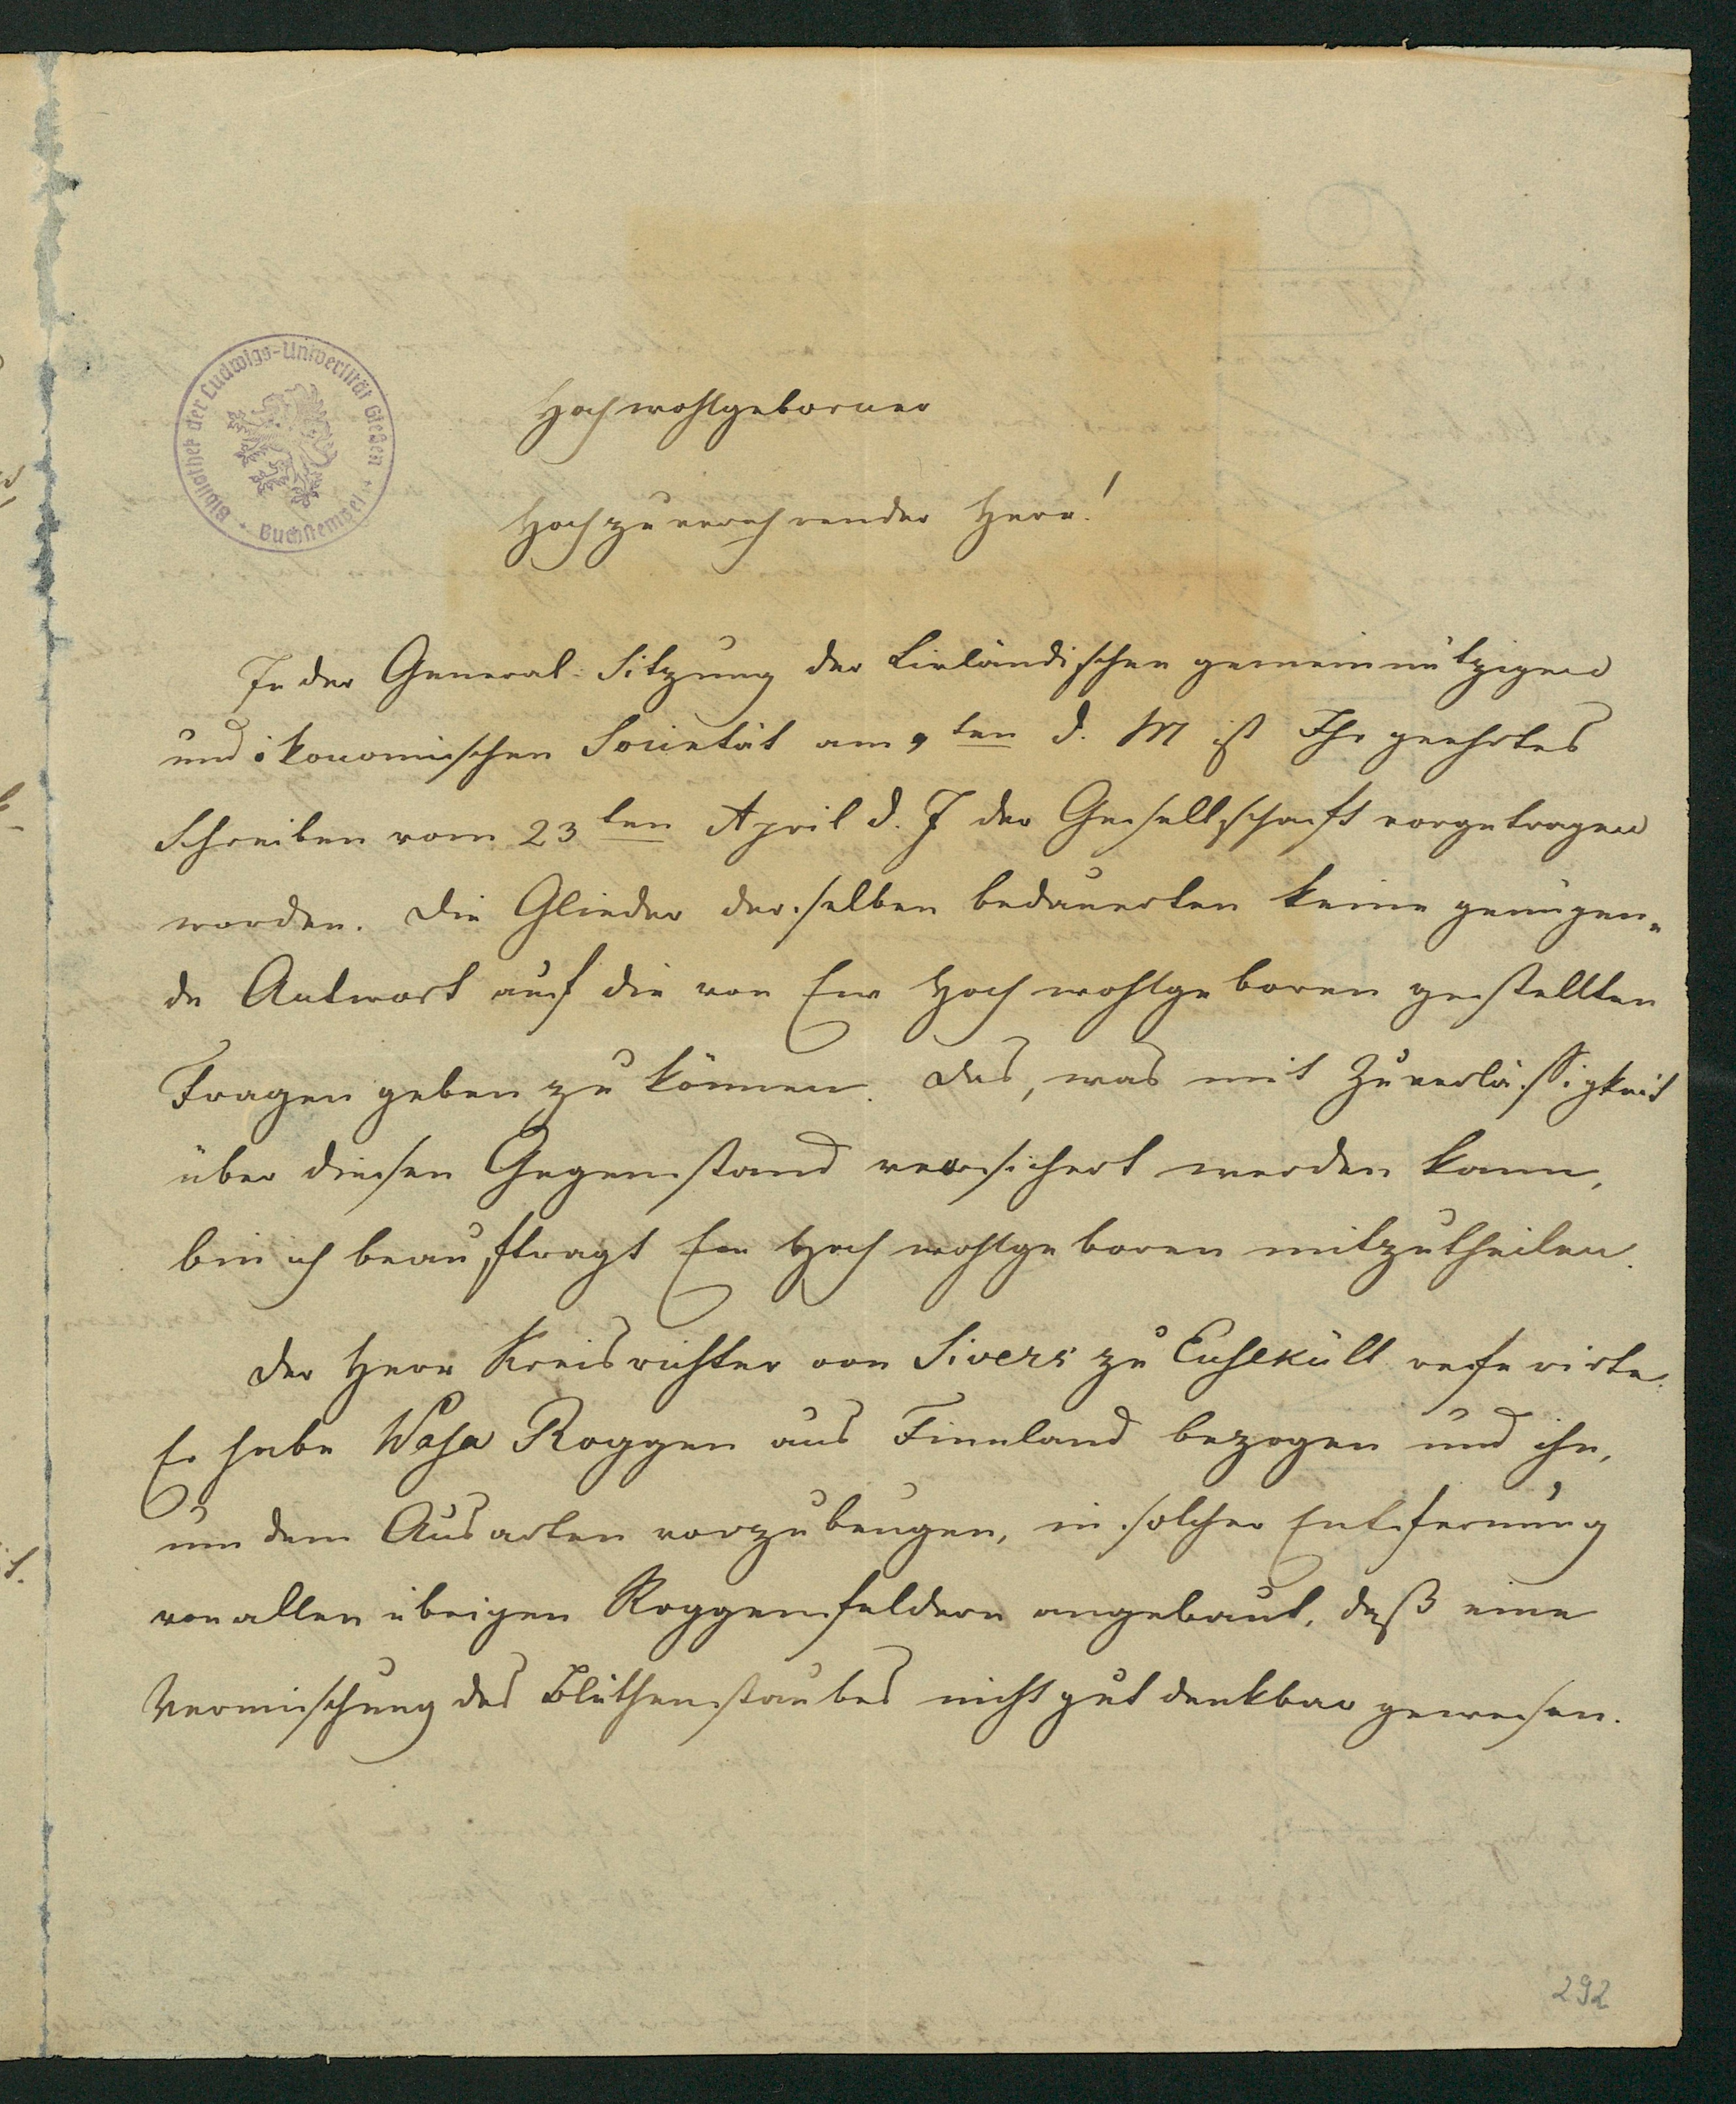 Bibliothek der Ludwigs-Universität Gießen
Buchstempel
Hochwohlgeborner
Hochzuverehrender Herr!
In der General-Sitzung der Livländischen gemeinnützigen
und ökonomischen Societät am 9ten d. M ist Ihr geehrtes
Schreiben vom 23ten April d. J der Gesellschaft vorgetragen
worden. Die Glieder derselben bedauerten keine genügen„
de Antwort auf die von Ew Hochwohlgeboren gestellten
Fragen geben zu können. Das, was mit Zuverlässigkeit
über diesen Gegenstand versichert werden kann,
bin ich beauftragt Ew Hochwohlgeboren mitzutheilen.
Der Herr Kreisrichter von Sivers zu Euseküll referirte.
Er habe Wasa Roggen aus Finnland bezogen und ihn,
um dem Ausarten vorzubeugen, in solcher Entfernung
von allen übrigen Roggenfeldern angebaut, daß eine
Vermischung des Blüthenstaubes nicht gut denkbar gewesen.
292